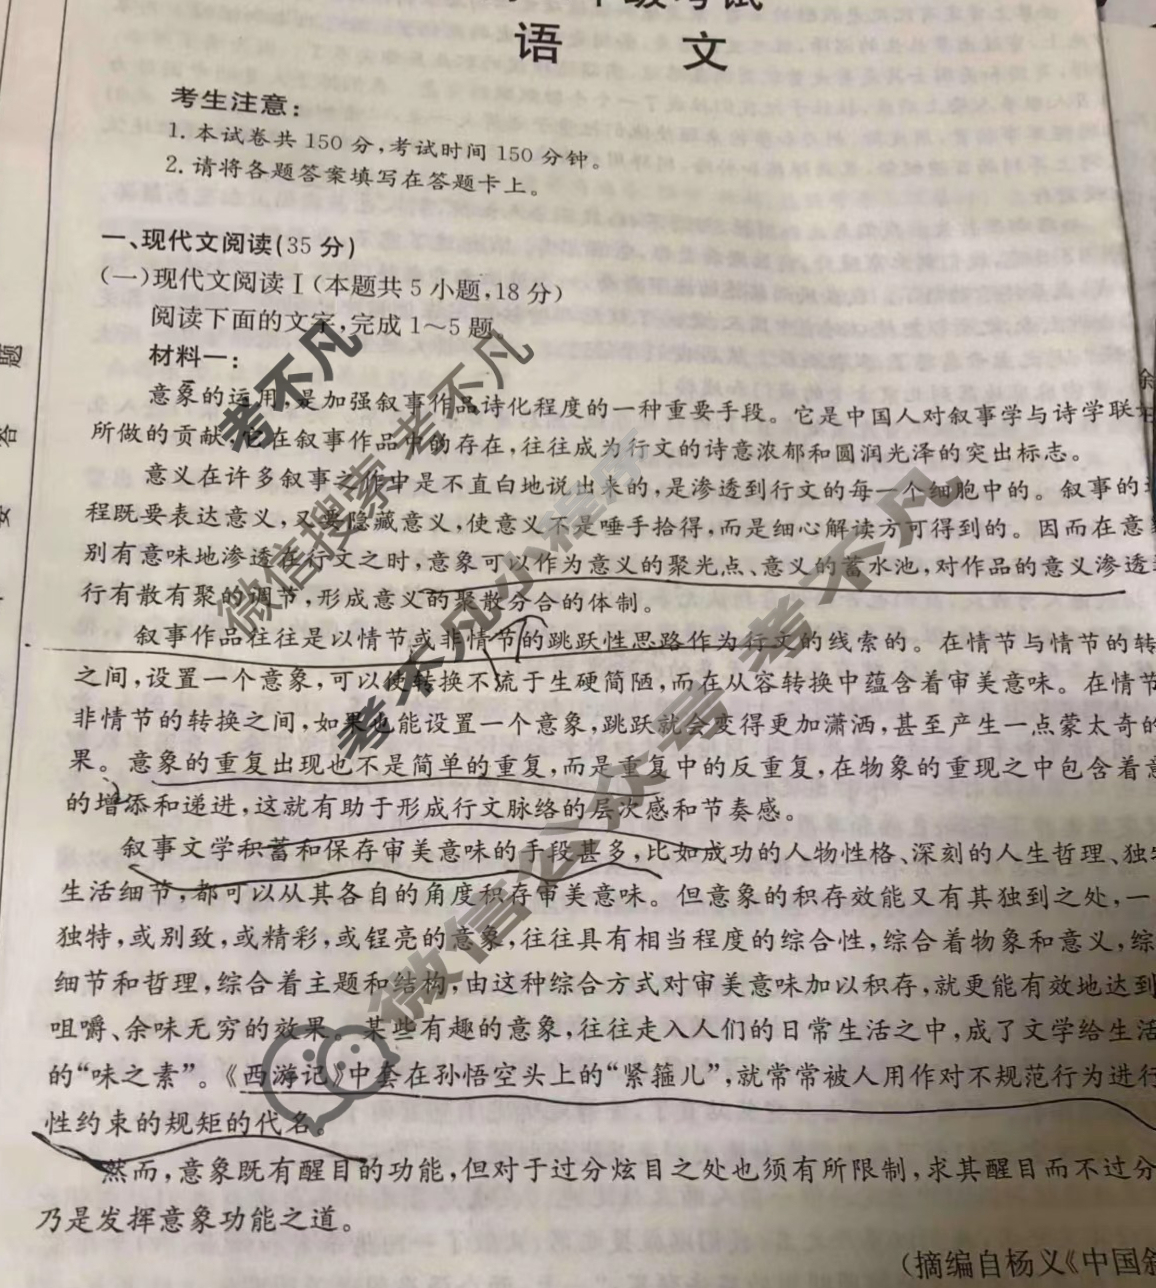 语 文
考生注意：
1.本试卷共150分，考试时间150分钟。
2.请将各题答案填写在答题卡上。
一、现代文阅读（35分）
（一）现代文阅读Ⅰ（本题共5小题，18分）
阅读下面的文字，完成1～5题。
材料一：
意象的运用，是加强叙事作品诗化程度的一种重要手段。它是中国人对叙事学与诗学联
所做的贡献，它在叙事作品中的存在，往往成为行文的诗意浓郁和圆润光泽的突出标志。
意义在许多叙事之作中是不直白地说出来的，是渗透到行文的每一个细胞中的。叙事的
程既要表达意义，又要隐藏意义，使意义不是唾手拾得，而是细心解读方可得到的。因而在意
别有意味地渗透在行文之时，意象可以作为意义的聚光点、意义的蓄水池，对作品的意义渗透
行有散有聚的调节，形成意义的聚散分合的体制。
叙事作品往往是以情节或非情节的跳跃性思路作为行文的线索的。在情节与情节的转
之间，设置一个意象，可以使转换不流于生硬简陋，而在从容转换中蕴含着审美意味。在情节
非情节的转换之间，如果也能设置一个意象，跳跃就会变得更加潇洒，甚至产生一点蒙太奇的
果。意象的重复出现也不是简单的重复，而是重复中的反重复，在物象的重现之中包含着意
的增添和递进，这就有助于形成行文脉络的层次感和节奏感。
叙事文学积蓄和保存审美意味的手段甚多，比如成功的人物性格、深刻的人生哲理、独特
生活细节，都可以从其各自的角度积存审美意味。但意象的积存效能又有其独到之处，一
独特，或别致，或精彩，或锃亮的意象，往往具有相当程度的综合性，综合着物象和意义，综
细节和哲理，综合着主题和结构，由这种综合方式对审美意味加以积存，就更能有效地达到
咀嚼、余味无穷的效果。某些有趣的意象，往往走入人们的日常生活之中，成了文学给生活
的“味之素”。《西游记》中套在孙悟空头上的“紧箍儿”，就常常被人用作对不规范行为进行
性约束的规矩的代名。
然而，意象既有醒目的功能，但对于过分炫目之处也须有所限制，求其醒目而不过分
乃是发挥意象功能之道。
（摘编自杨义《中国叙
题
答
要
考不凡
微信搜索 考不凡
考不凡小程序
微信公众号 考不凡